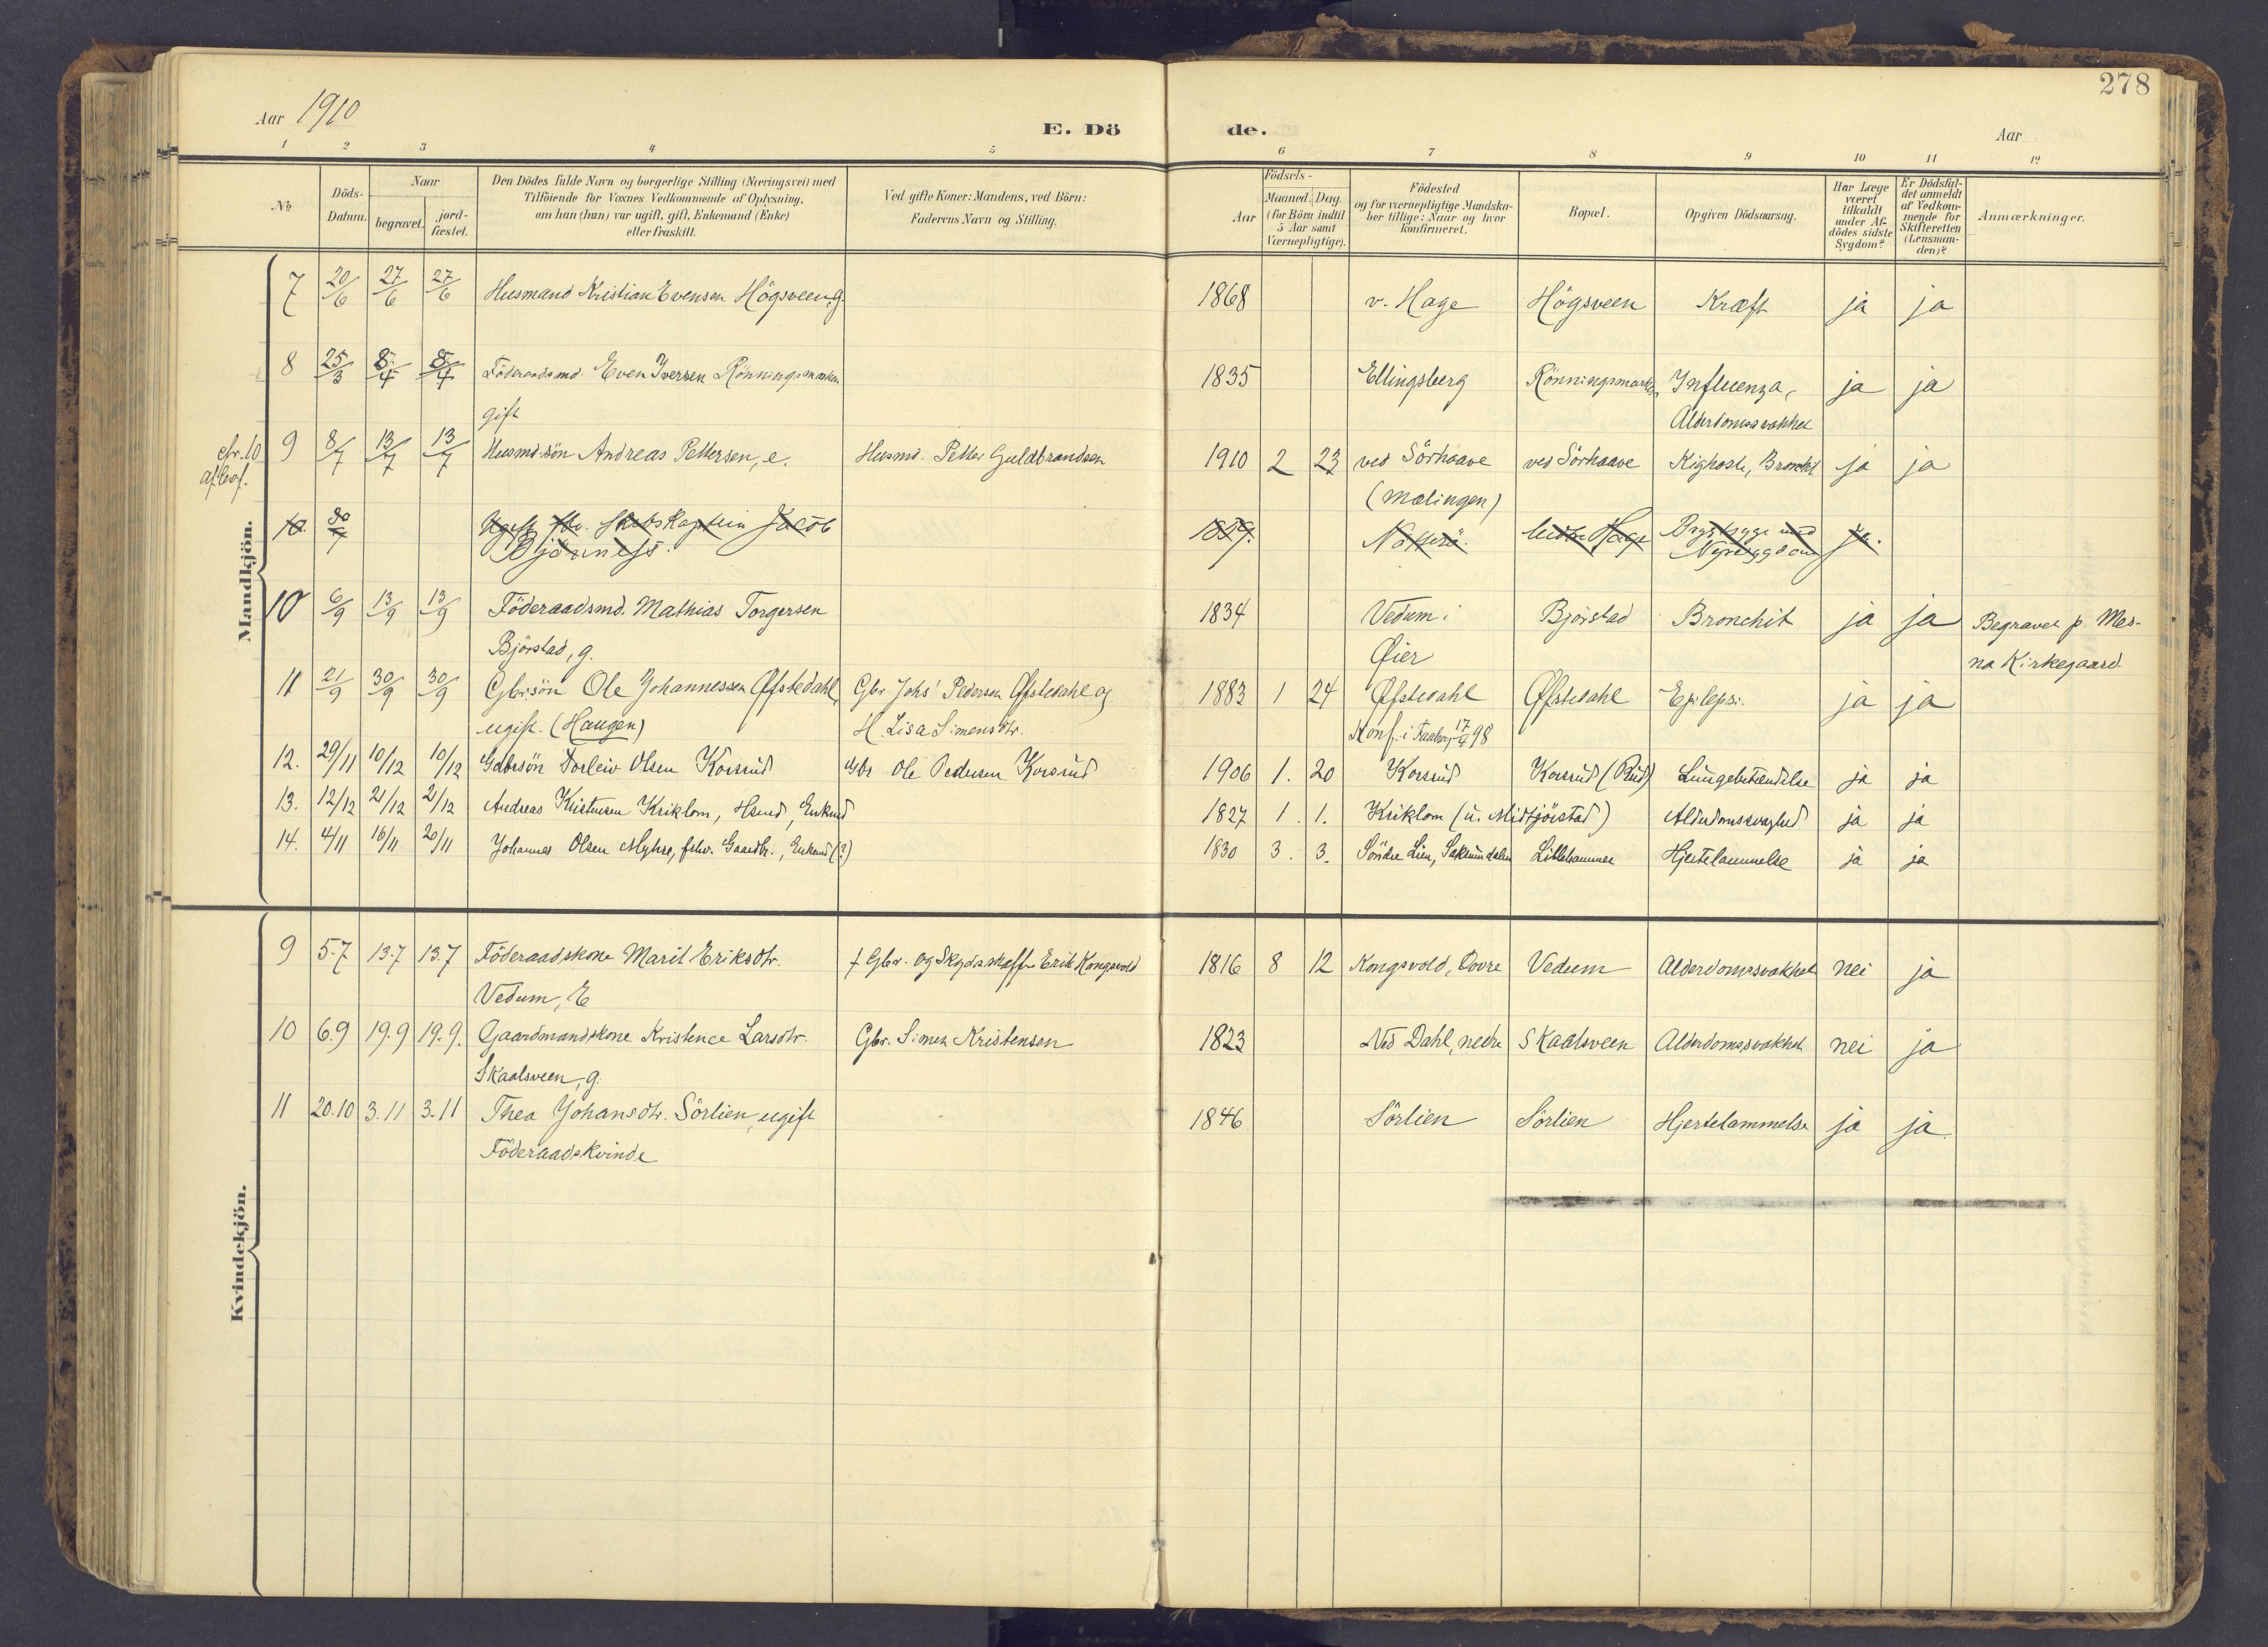 278
Aar 1910
E. Dö de.
Aar
1 2 3 4 5 6 7 8 9 10 11 12
No
Döds-
Datum.
Naar
begravet.
jord-
fæstet.
Den Dödes fulde Navn og borgerlige Stilling (Næringsvei) med
Tilföiende for Voxnes Vedkommende af Oplysning,
om han (hun) var ugift, gift, Enkemand (Enke)
eller fraskilt.
Ved gifte Koner: Mandens, ved Börn:
Faderens Navn og Stilling.
Födsels-
Aar
Maaned. Dag.
(for Börn indtil
5 Aar samt
Værnepligtige).
Födested
og for værnepligtige Mandska-
ber tillige: Naar og hvor
konfirmeret.
Bopæl.
Opgiven Dödsaarsag.
Har Læge
været
tilkaldt
under Af-
dödes sidste
Sygdom?
Er Dödsfal-
det anmeldt
af Vedkom-
mende for
Skifteretten
(Lensman-
den)?
Anmærkninger.
Mandkjön.
7 20/6 27/6 27/6 Husmand Kristian Evensen Högsveen, g. 1868 v. Hage Högsveen Kræft ja ja
8 25/3 8/4 8/4 Föderaadsmd. Even Iversen Rönningsmarken 1835 Ellingsberg Rönningsmarken Influenza, ja ja
gift Alderdomssvakhet
cfr. 10
9 8/7 13/7 13/7 Husmd.sön Andreas Pettersen, e. Husmd. Petter Guldbrandsen 1910 2 23 ved Sörhaave ved Sörhaave Kighoste, Bronchit ja ja
(Mælingen)
10. 30/7 Ugift fhv. Skibskaptein Jacob 1859. Nötterö. Hage ja.
Bjönness.
10 6/9 13/9 13/9 Föderaadsmd. Mathias Torgersen 1834 Vedum i Björstad Bronchit ja ja Begravet p. Mes-
Björstad, g. Øier na Kirkegaard.
11 21/9 30/9 30/9 Gbr.sön Ole Johannessen Øfstedahl, Gbr Johs' Pedersen Øfstedahl og 1883 1 24 Øfstedahl Øfstedahl Epilepsi. ja ja
ugift. (Haugen) H. Lisa Simensdtr. Konf. i Faaberg 17/4 98
12. 29/11 10/12 10/12 Gdbrsön Torleiv Olsen Korsrud Gbr Ole Pedersen Korsrud 1906 1. 20 Korsrud Korsrud (Rud) Lungebetændelse ja ja
13. 12/12 21/12 21/12 Andreas Kristensen Kriklom, Hsmd, Enkmd 1827 1. 1. Kriklom (u. Midtjörstad) Alderdomssvaghed ja ja
14. 4/11 16/11 20/11 Johannes Olsen Myhre, fhv. Gaardbr., Enkemd (?) 1830 3. 3. Söndre Lien, Saksumdalen Lillehammer Hjertelammelse ja ja
Kvindekjön.
9 5.7 13.7 13.7 Föderaadskone Marit Eriksdtr. † Gbr. og Skydsskaffer Erik Kongsvold 1816 8 12 Kongsvold, Dovre Vedum Alderdomssvakhet nei ja
Vedum, E
10 6.9 19.9 19.9. Gaardmandskone Kristence Larsdtr. Gbr. Simen Kristensen 1823 Ned Dahl, nedre Skaalsveen Alderdomssvakhet nei ja
Skaalsveen, g.
11 20.10 3.11 3.11 Thea Johansdtr. Sörlien, ugift 1846 Sörlien Sörlien Hjertelammelse ja ja.
Föderaadskvinde